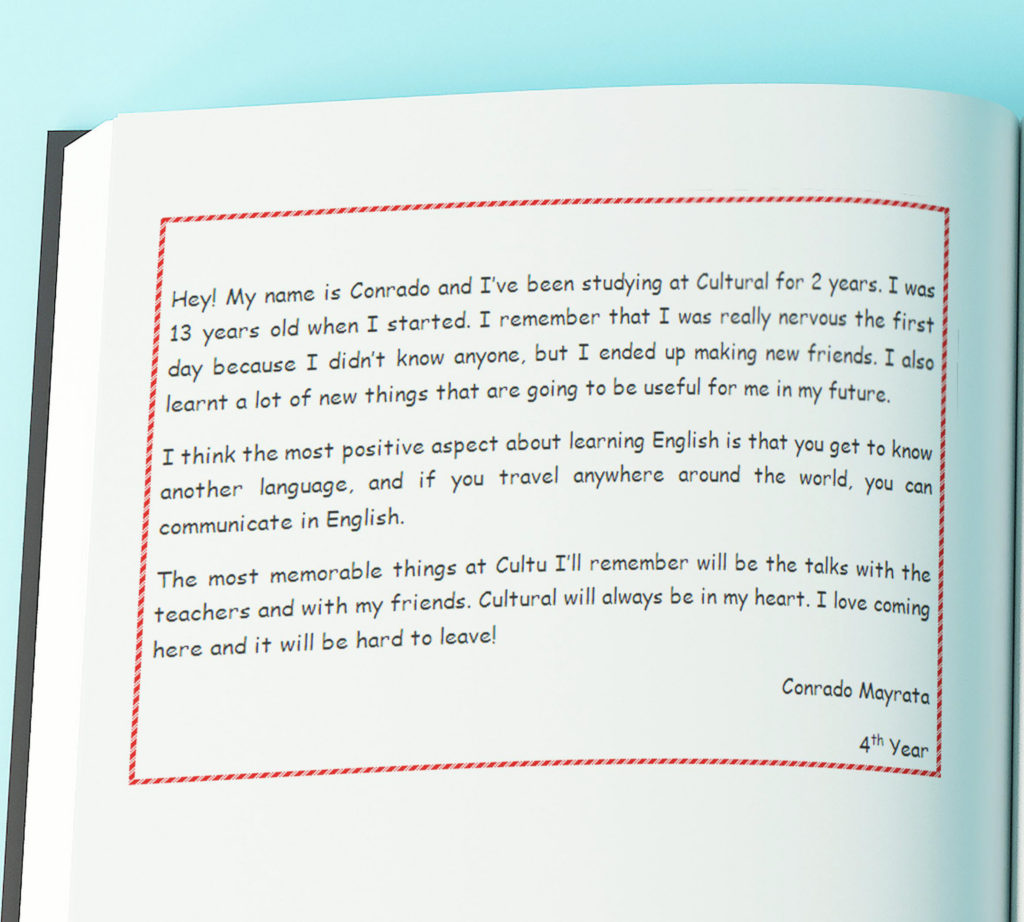 Hey! My name is Conrado and I've been studying at Cultural for 2 years. I was
13 years old when I started. I remember that I was really nervous the first
day because I didn't know anyone, but I ended up making new friends. I also
learnt a lot of new things that are going to be useful for me in my future.
I think the most positive aspect about learning English is that you get to know
another language, and if you travel anywhere around the world, you can
communicate in English.
The most memorable things at Cultu I'll remember will be the talks with the
teachers and with my friends. Cultural will always be in my heart. I love coming
here and it will be hard to leave!
Conrado Mayrata
4th Year